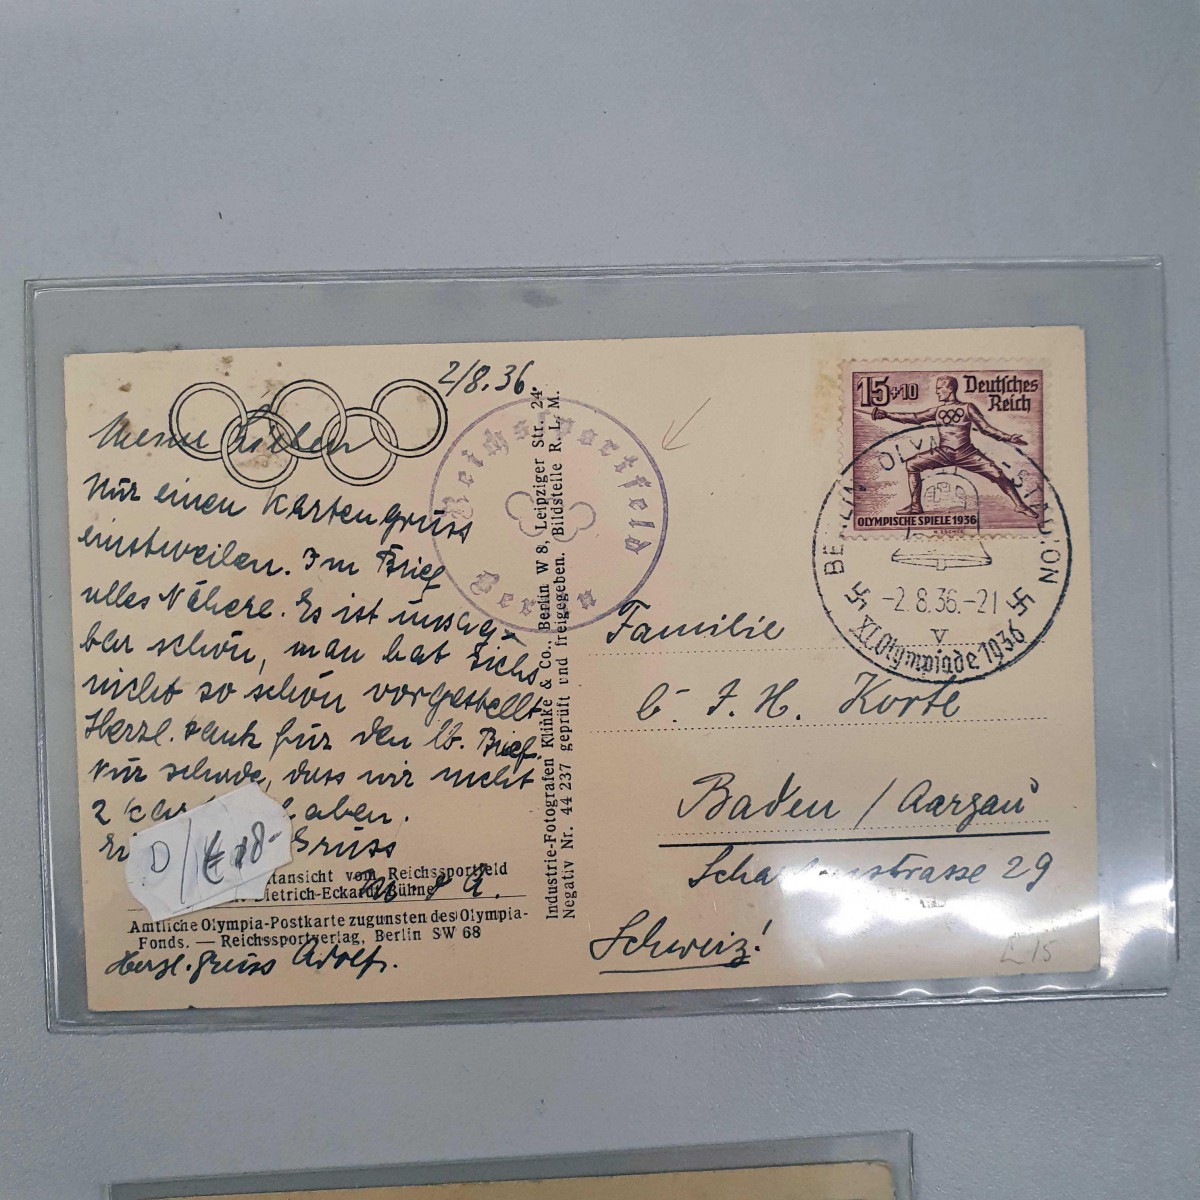 2/8.36.
Meine Lieben
Nur einen Kartengruss
einstweilen. Im Brief
alles Nähere. Es ist unsag-
bar schön, man hat sichs
nicht so schön vorgestellt.
Herzl. Dank für den lb. Brief.
Nur schade, dass wir nicht
2 haben.
Gruss
tansicht vom Reichssportfeld
Dietrich-Eckart-Bühne
Amtliche Olympia-Postkarte zugunsten des Olympia-
Fonds. — Reichssportverlag, Berlin SW 68
Herzl. Gruss Adolf.
D/€ 18-
Reichssportfeld
Berlin
Industrie-Fotografen Klinke & Co., Berlin W 8, Leipziger Str. 24.
Negativ Nr. 44 237 geprüft und freigegeben. Bildstelle R. L. M.
15+10 Deutsches
Reich
OLYMPISCHE SPIELE 1936
BERLIN OLYMPIA-STADION
-2.8.36.-21
v
XI. Olympiade 1936
Familie
C. F. H. Korte
Baden / Aargau
29
Schweiz!
£15